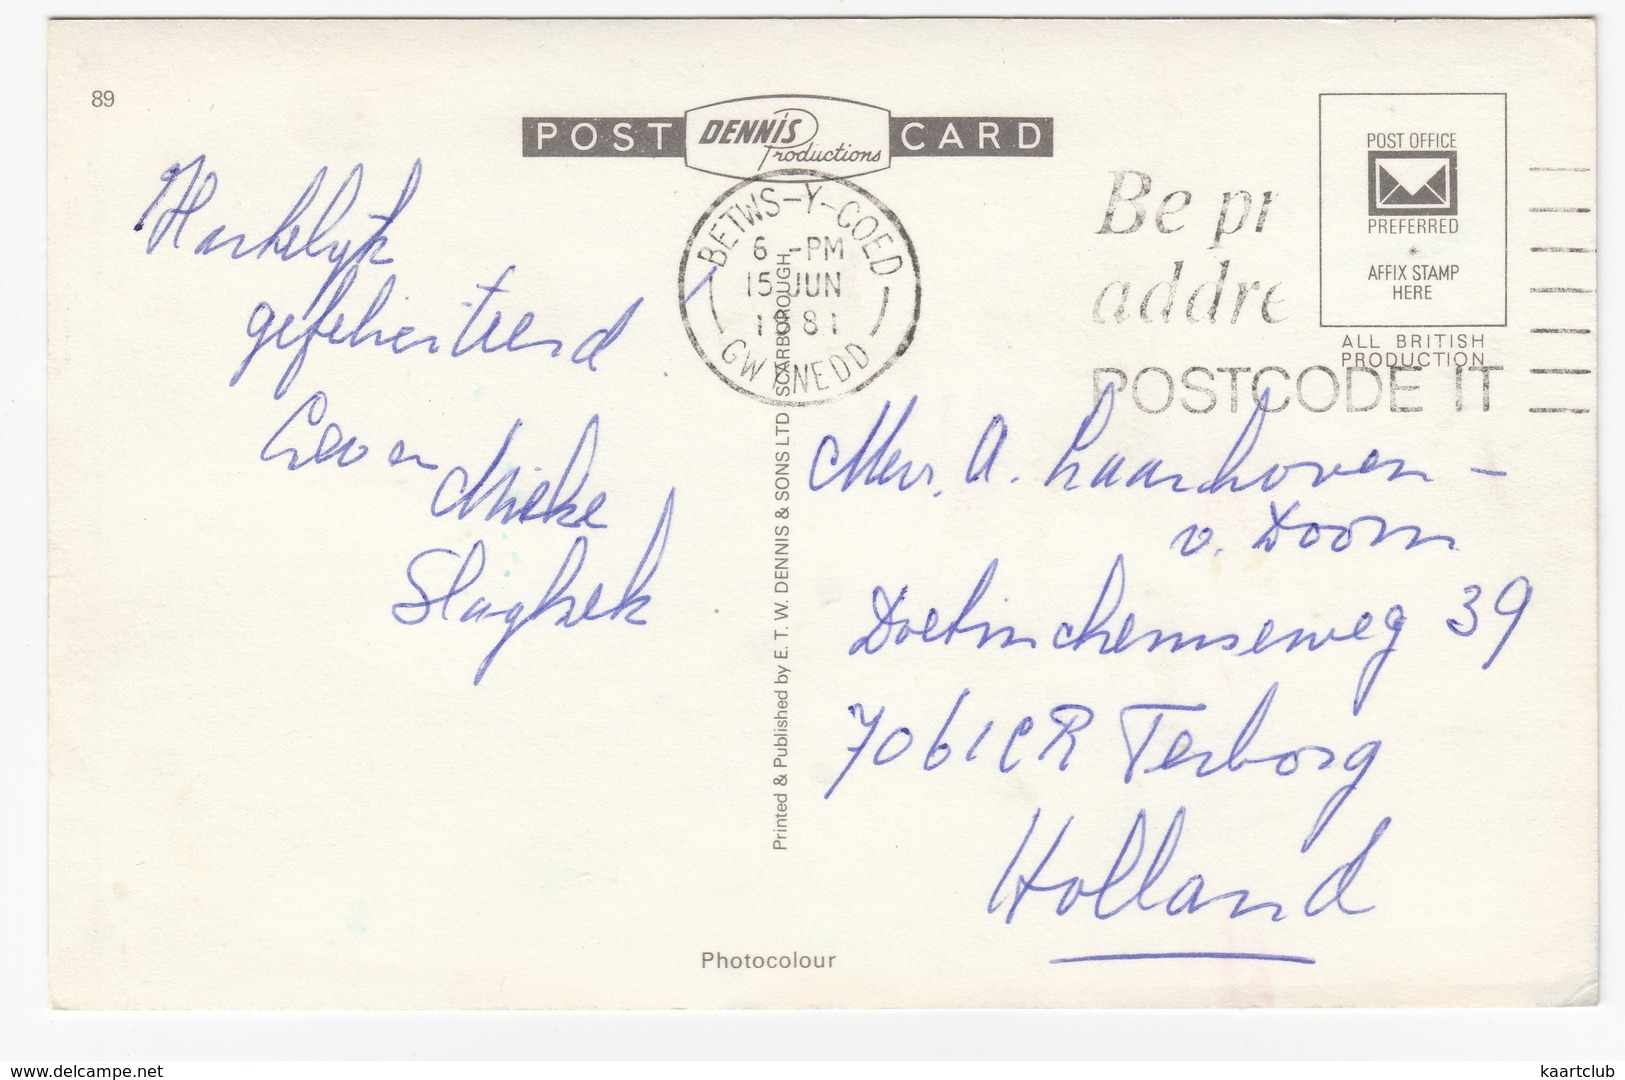 89
POST DENNIS Productions CARD
Be pr
addre
POSTCODE IT
POST OFFICE
PREFERRED
*
AFFIX STAMP
HERE
ALL BRITISH
PRODUCTION
BETWS-Y-COED
6 -PM
15 JUN
1981
GWYNEDD
Hartelijk
gefeliciteerd!
en Mieke
Slaghek
Printed & Published by E. T. W. DENNIS & SONS LTD SCARBOROUGH
Mevr. A. Laarhoven -
v. Doorn
Doetinchemseweg 39
7061CR Terborg
Holland
Photocolour
www.delcampe.net
kaartclub